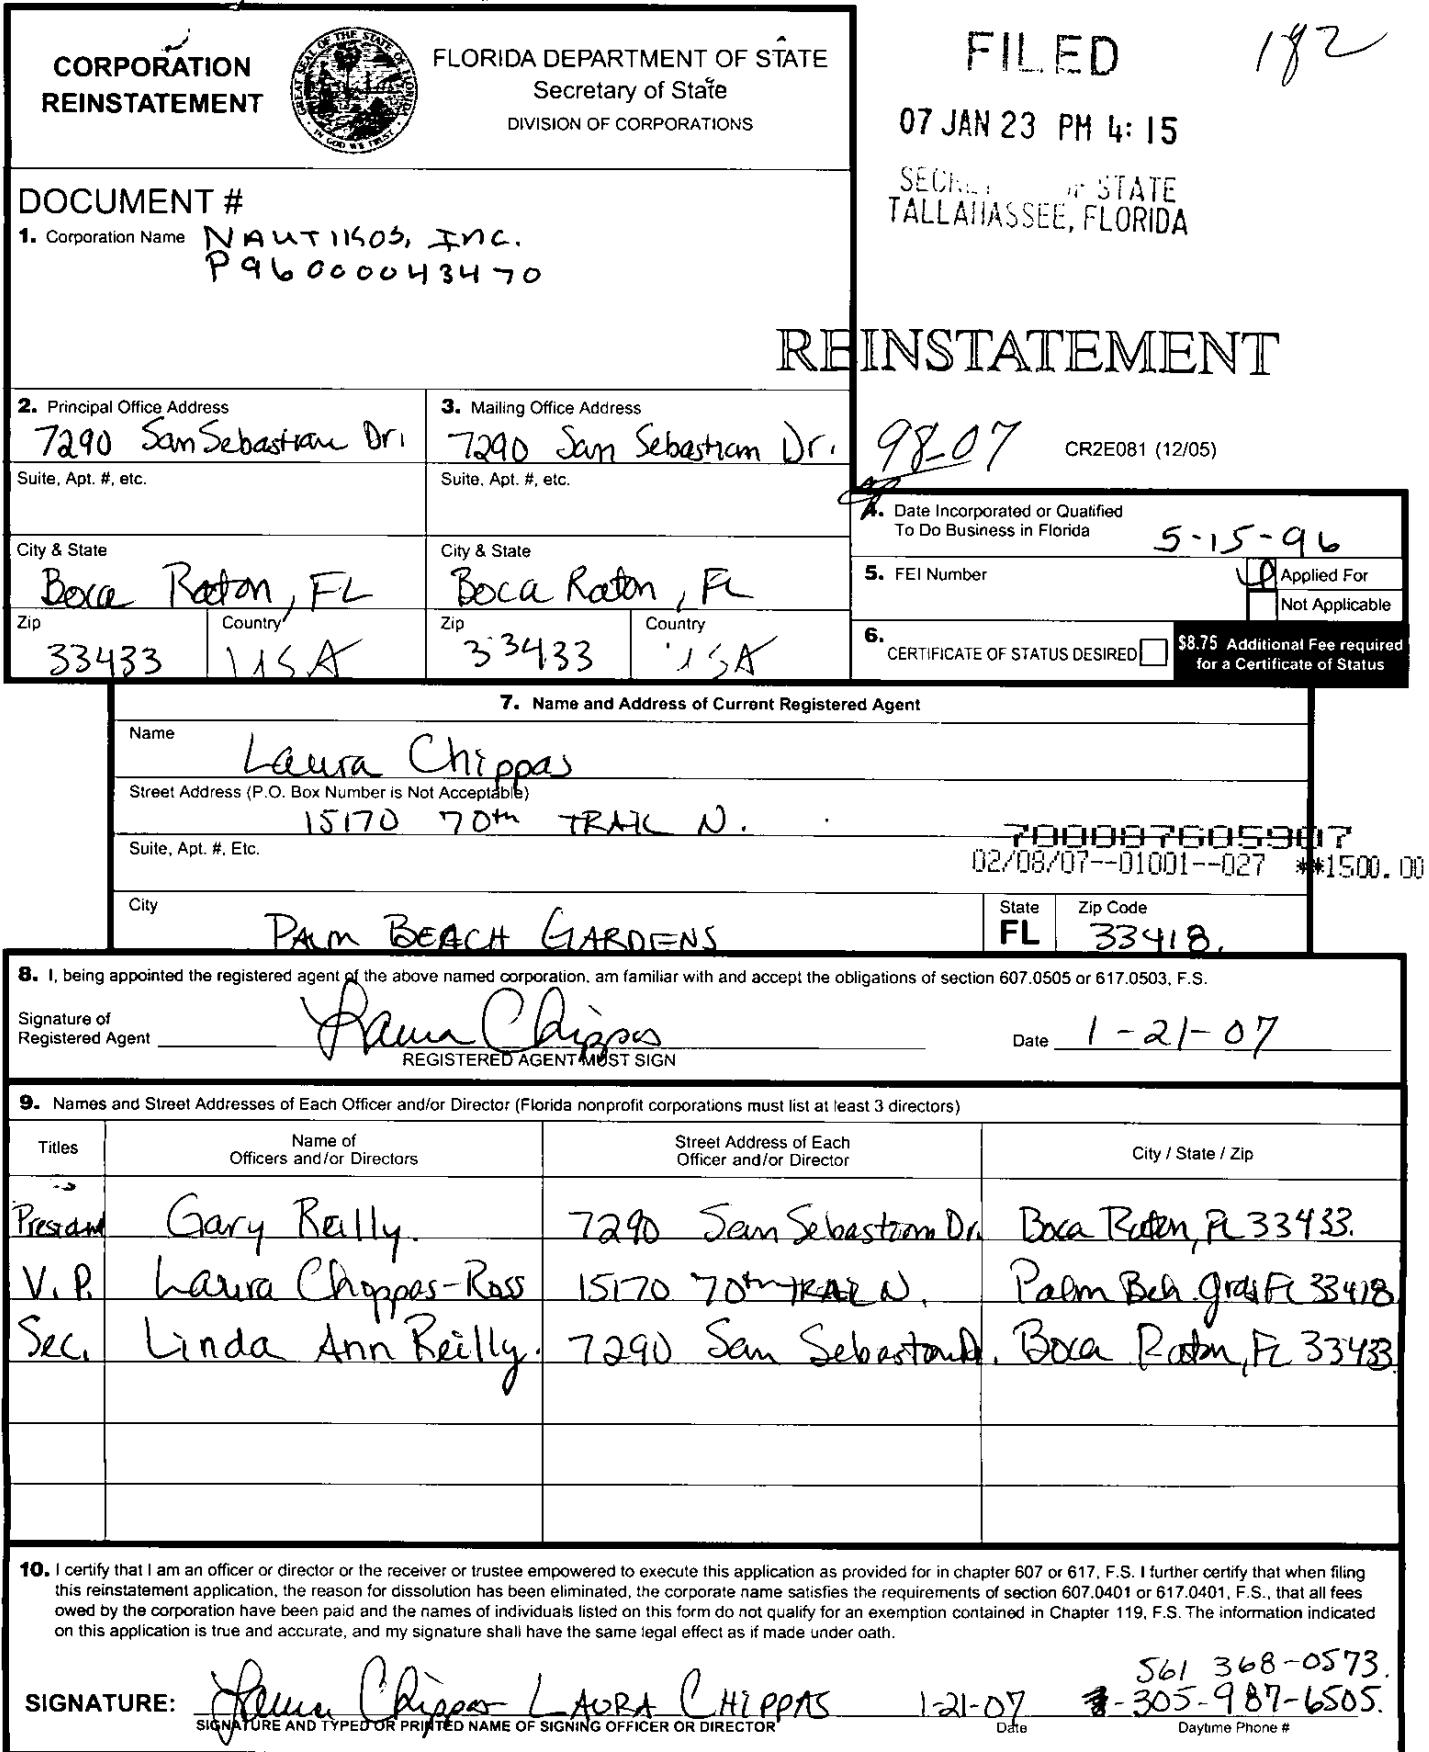 CORPORATION
REINSTATEMENT
FLORIDA DEPARTMENT OF STATE
Secretary of State
DIVISION OF CORPORATIONS
FILED
07 JAN 23 PM 4: 15
STATE
TALLAHASSEE, FLORIDA
DOCUMENT #
1. Corporation Name NAUTIKOS, INC.
P96000043470
REINSTATEMENT
98-07
CR2E081 (12/05)
2. Principal Office Address
7290 San Sebastian Dr.
3. Mailing Office Address
7290 San Sebastian Dr.
Suite, Apt. #, etc.
Suite, Apt. #, etc.
City & State
Boca Raton, FL
City & State
Boca Raton, FL
Zip
33433
Country
USA
Zip
33433
Country
USA
4. Date Incorporated or Qualified
To Do Business in Florida
5-15-96
5. FEI Number
Applied For
Not Applicable
6. CERTIFICATE OF STATUS DESIRED
$8.75 Additional Fee required
for a Certificate of Status
7. Name and Address of Current Registered Agent
Name
Laura Chippas
Street Address (P.O. Box Number is Not Acceptable)
15170 70th TRAIL N.
Suite, Apt. #, Etc.
700087605907
02/08/07--01001--027 **1500.00
City
PALM BEACH GARDENS
State
FL
Zip Code
33418.
8. I, being appointed the registered agent of the above named corporation, am familiar with and accept the obligations of section 607.0505 or 617.0503, F.S.
Signature of
Registered Agent Laura Chippas
Date 1-21-07
REGISTERED AGENT MUST SIGN
9. Names and Street Addresses of Each Officer and/or Director (Florida nonprofit corporations must list at least 3 directors)
Titles
Name of
Officers and/or Directors
Street Address of Each
Officer and/or Director
City / State / Zip
President Gary Reilly. 7290 San Sebastian Dr. Boca Raton, FL 33433.
V.P. Laura Chippas-Ross 15170 70th TRAIL N. Palm Bch grds FL 33418
Sec. Linda Ann Reilly. 7290 San Sebastian Dr. Boca Raton, FL 33433
10. I certify that I am an officer or director or the receiver or trustee empowered to execute this application as provided for in chapter 607 or 617, F.S. I further certify that when filing
this reinstatement application, the reason for dissolution has been eliminated, the corporate name satisfies the requirements of section 607.0401 or 617.0401, F.S., that all fees
owed by the corporation have been paid and the names of individuals listed on this form do not qualify for an exemption contained in Chapter 119, F.S. The information indicated
on this application is true and accurate, and my signature shall have the same legal effect as if made under oath.
561 368-0573.
SIGNATURE: Laura Chippas LAURA CHIPPAS 1-21-07 305-987-6505.
SIGNATURE AND TYPED OR PRINTED NAME OF SIGNING OFFICER OR DIRECTOR
Date
Daytime Phone #